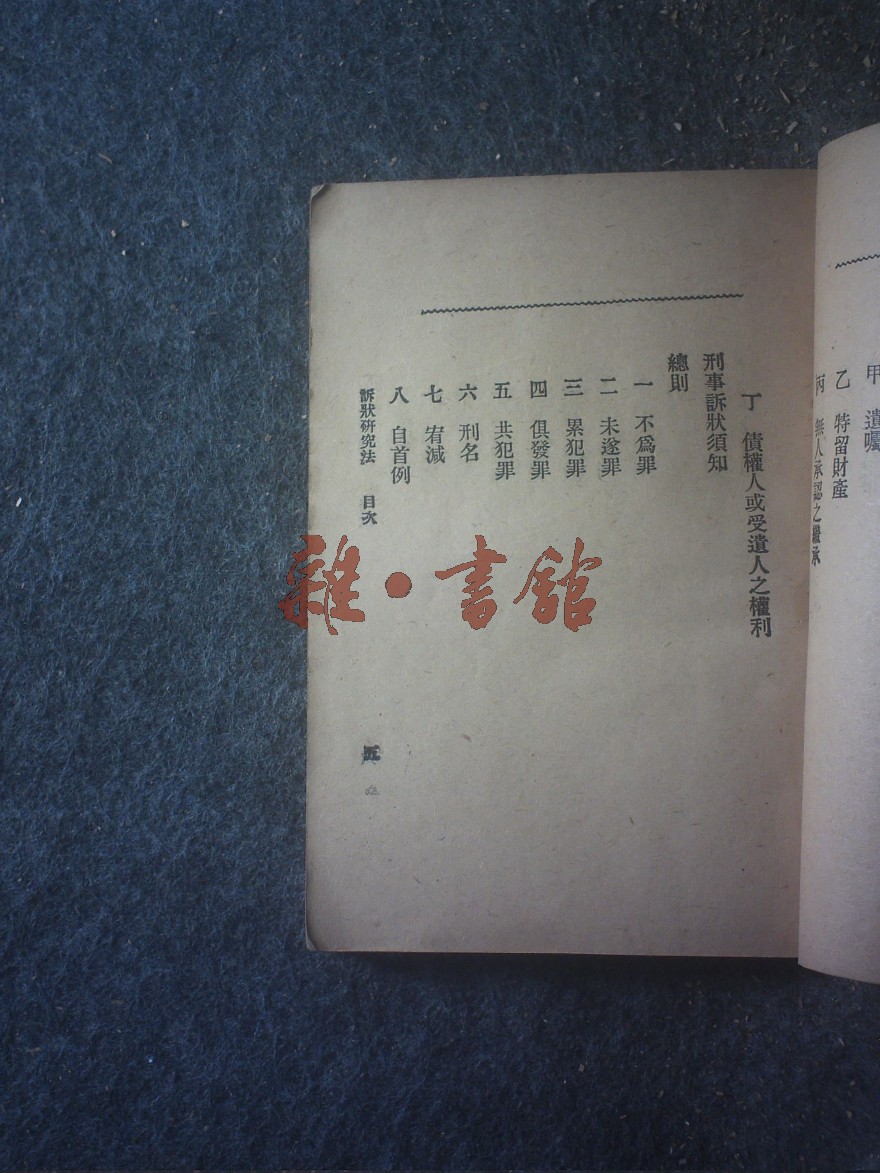 甲　遺囑
乙　特留財產
丙　無人承認之繼承
丁　債權人或受遺人之權利
刑事訴狀須知
總則
一　不爲罪
二　未遂罪
三　累犯罪
四　俱發罪
五　共犯罪
六　刑名
七　宥減
八　自首例
訴狀研究法　目次
五
雜·書館